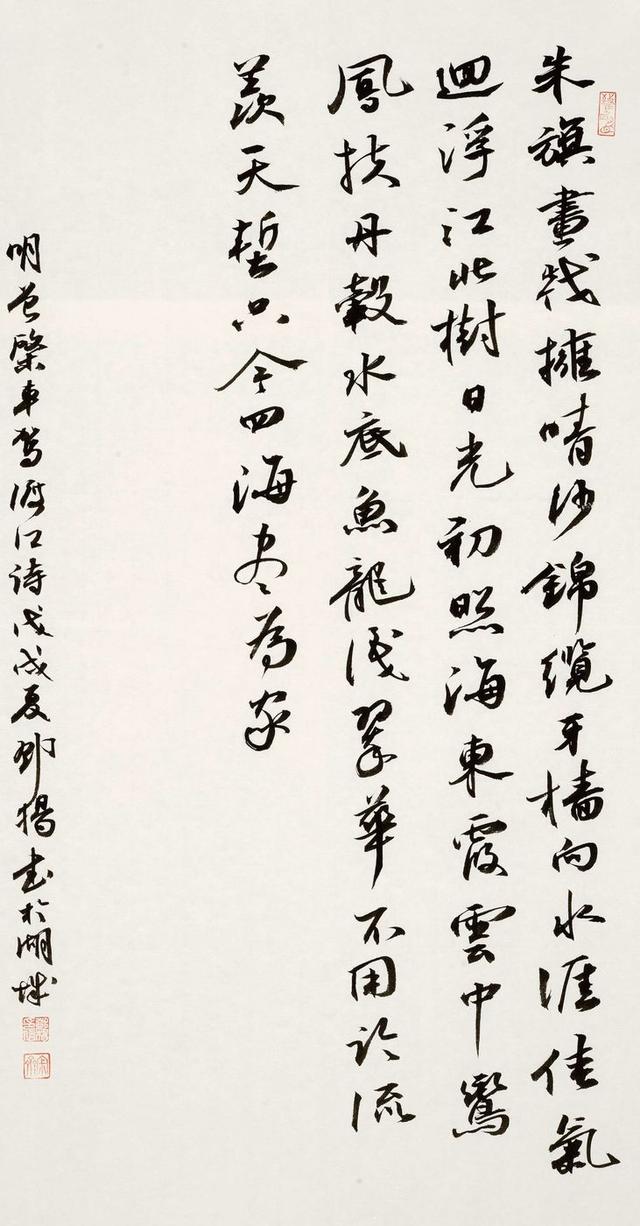 朱旗畫戟擁晴沙錦纜牙檣向水涯佳氣
迴浮江北樹日光初照海東霞雲中鸞
鳳扶丹轂水底魚龍識翠華不用臨流
羨天塹只今四海尽為家
明曾棨車駕渡江詩戊戌夏書於湖城